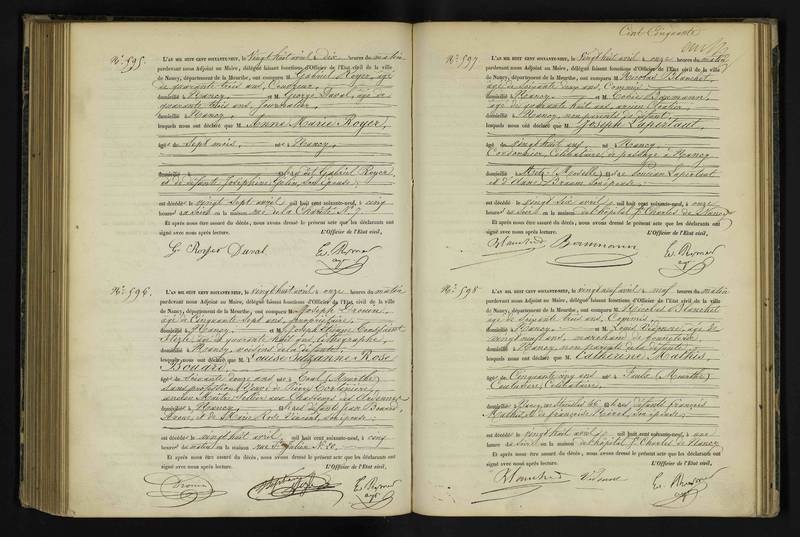 Cent Cinquante
N.° 595.
L'AN MIL HUIT CENT SOIXANTE-NEUF, le Vingt huit avril à dix heures du matin
pardevant nous Adjoint au Maire, délégué faisant fonctions d'Officier de l'Etat civil de la ville
de Nancy, département de la Meurthe, ont comparu M. Gabriel Royer, âgé
de quarante trois ans, Cordier
domicilié à Nancy et M. George Duval, âgé de
quarante trois ans, Journalier
domicilié à Nancy,
lesquels nous ont déclaré que M. Anne Marie Royer,
âgé de Sept mois, né à Nancy
domicilié à fils de Gabriel Royer
et de défunte Joséphine son épouse
est décédé le vingt Sept avril mil huit cent soixante-neuf, à cinq
heures du soir en la maison rue de la Charité N.° 7
Et après nous être assuré du décès, nous avons dressé le présent acte que les déclarants ont
signé avec nous après lecture. L'Officier de l'Etat civil,
G. Royer Duval
N.° 596.
L'AN MIL HUIT CENT SOIXANTE-NEUF, le Vingt huit avril à onze heures du matin
pardevant nous Adjoint au Maire, délégué faisant fonctions d'Officier de l'Etat civil de la ville
de Nancy, département de la Meurthe, ont comparu M. Joseph
âgé de Cinquante Sept ans, propriétaire
domicilié à Nancy, et M. Joseph
âgé de quarante huit ans, lithographe,
domicilié à Nancy, voisins de la défunte
lesquels nous ont déclaré que M. Louise Suzanne Rose
Bouard,
âgé de Soixante douze ans né à (Meurthe)
sans profession, Veuve de Pierre
ancien Maître Sellier aux Chasseurs des Ardennes
domicilié à Nancy, fille de défunts Jean Bouard
et de Marie Rose Vincent, son épouse
est décédé le vingt huit avril mil huit cent soixante-neuf, à cinq
heures du matin en la maison rue N.° 20
Et après nous être assuré du décès, nous avons dressé le présent acte que les déclarants ont
signé avec nous après lecture. L'Officier de l'Etat civil,
N.° 597
L'AN MIL HUIT CENT SOIXANTE-NEUF, le Vingt huit avril à onze heures du matin
pardevant nous Adjoint au Maire, délégué faisant fonctions d'Officier de l'Etat civil de la ville
de Nancy, département de la Meurthe, ont comparu M. Nicolas Blanchet
âgé de Soixante ans, Commis
domicilié à Nancy et M. Baumann
âgé de quarante huit ans, ancien
domicilié à Nancy, non parents du défunt,
lesquels nous ont déclaré que M. Joseph Lapertaut,
âgé de vingt huit ans né à Nancy
Cordonnier, Célibataire, de passage à Nancy
domicilié à Metz (Moselle) fils de Lapertaut
et d'Anne son épouse
est décédé le vingt six avril mil huit cent soixante-neuf, à onze
heures du soir en la maison de l'hôpital S.t Charles de Nancy
Et après nous être assuré du décès, nous avons dressé le présent acte que les déclarants ont
signé avec nous après lecture. L'Officier de l'Etat civil,
Blanchet Baumann
N.° 598
L'AN MIL HUIT CENT SOIXANTE-NEUF, le Vingt neuf avril à neuf heures du matin
pardevant nous Adjoint au Maire, délégué faisant fonctions d'Officier de l'Etat civil de la ville
de Nancy, département de la Meurthe, ont comparu M. Nicolas Blanchet
âgé de Soixante ans, Commis
domicilié à Nancy, et M. Louis âgé de
vingt neuf ans, marchand de
domicilié à Nancy, non parents de la défunte,
lesquels nous ont déclaré que M. Catherine Mathis,
âgé de Cinquante cinq ans né à (Meurthe)
Couturière, Célibataire,
domicilié à Nancy, fille de défunts François
Mathis, et de Françoise son épouse
est décédé le vingt huit avril mil huit cent soixante-neuf, à une
heure du soir en la maison de l'hôpital S.t Charles de Nancy
Et après nous être assuré du décès, nous avons dressé le présent acte que les déclarants ont
signé avec nous après lecture. L'Officier de l'Etat civil,
Blanchet